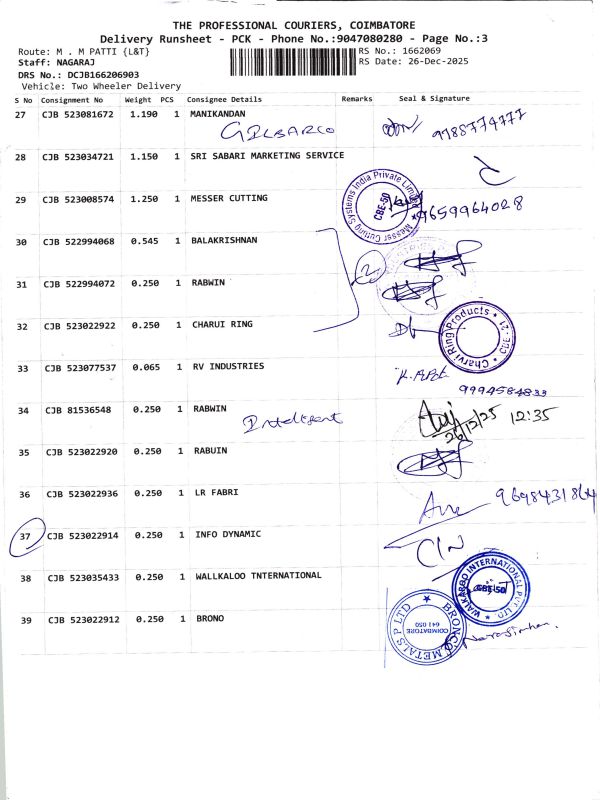 THE PROFESSIONAL COURIERS, COIMBATORE
Delivery Runsheet - PCK - Phone No.:9047080280 - Page No.:3
Route: M . M PATTI {L&T} RS No.: 1662069
Staff: NAGARAJ RS Date: 26-Dec-2025
DRS No.: DCJB166206903
Vehicle: Two Wheeler Delivery
S No Consignment No Weight PCS Consignee Details Remarks Seal & Signature
27 CJB 523081672 1.190 1 MANIKANDAN
GILBARCO 9785774777
28 CJB 523034721 1.150 1 SRI SABARI MARKETING SERVICE
29 CJB 523008574 1.250 1 MESSER CUTTING
Messer Cutting Systems India Private Limited CBE-50
9659964028
30 CJB 522994068 0.545 1 BALAKRISHNAN
2
31 CJB 522994072 0.250 1 RABWIN
32 CJB 523022922 0.250 1 CHARUI RING
Charvi Ring Products CBE-21
33 CJB 523077537 0.065 1 RV INDUSTRIES
9994584833
34 CJB 81536548 0.250 1 RABWIN
Inteligent 26/12/25 12:35
35 CJB 523022920 0.250 1 RABUIN
36 CJB 523022936 0.250 1 LR FABRI
9698431864
37 CJB 523022914 0.250 1 INFO DYNAMIC
38 CJB 523035433 0.250 1 WALLKALOO TNTERNATIONAL
WALKAROO INTERNATIONAL PVT LTD. CBE-50
39 CJB 523022912 0.250 1 BRONO
BRONCO METALS P LTD COIMBATORE 641 050
Narasimhan